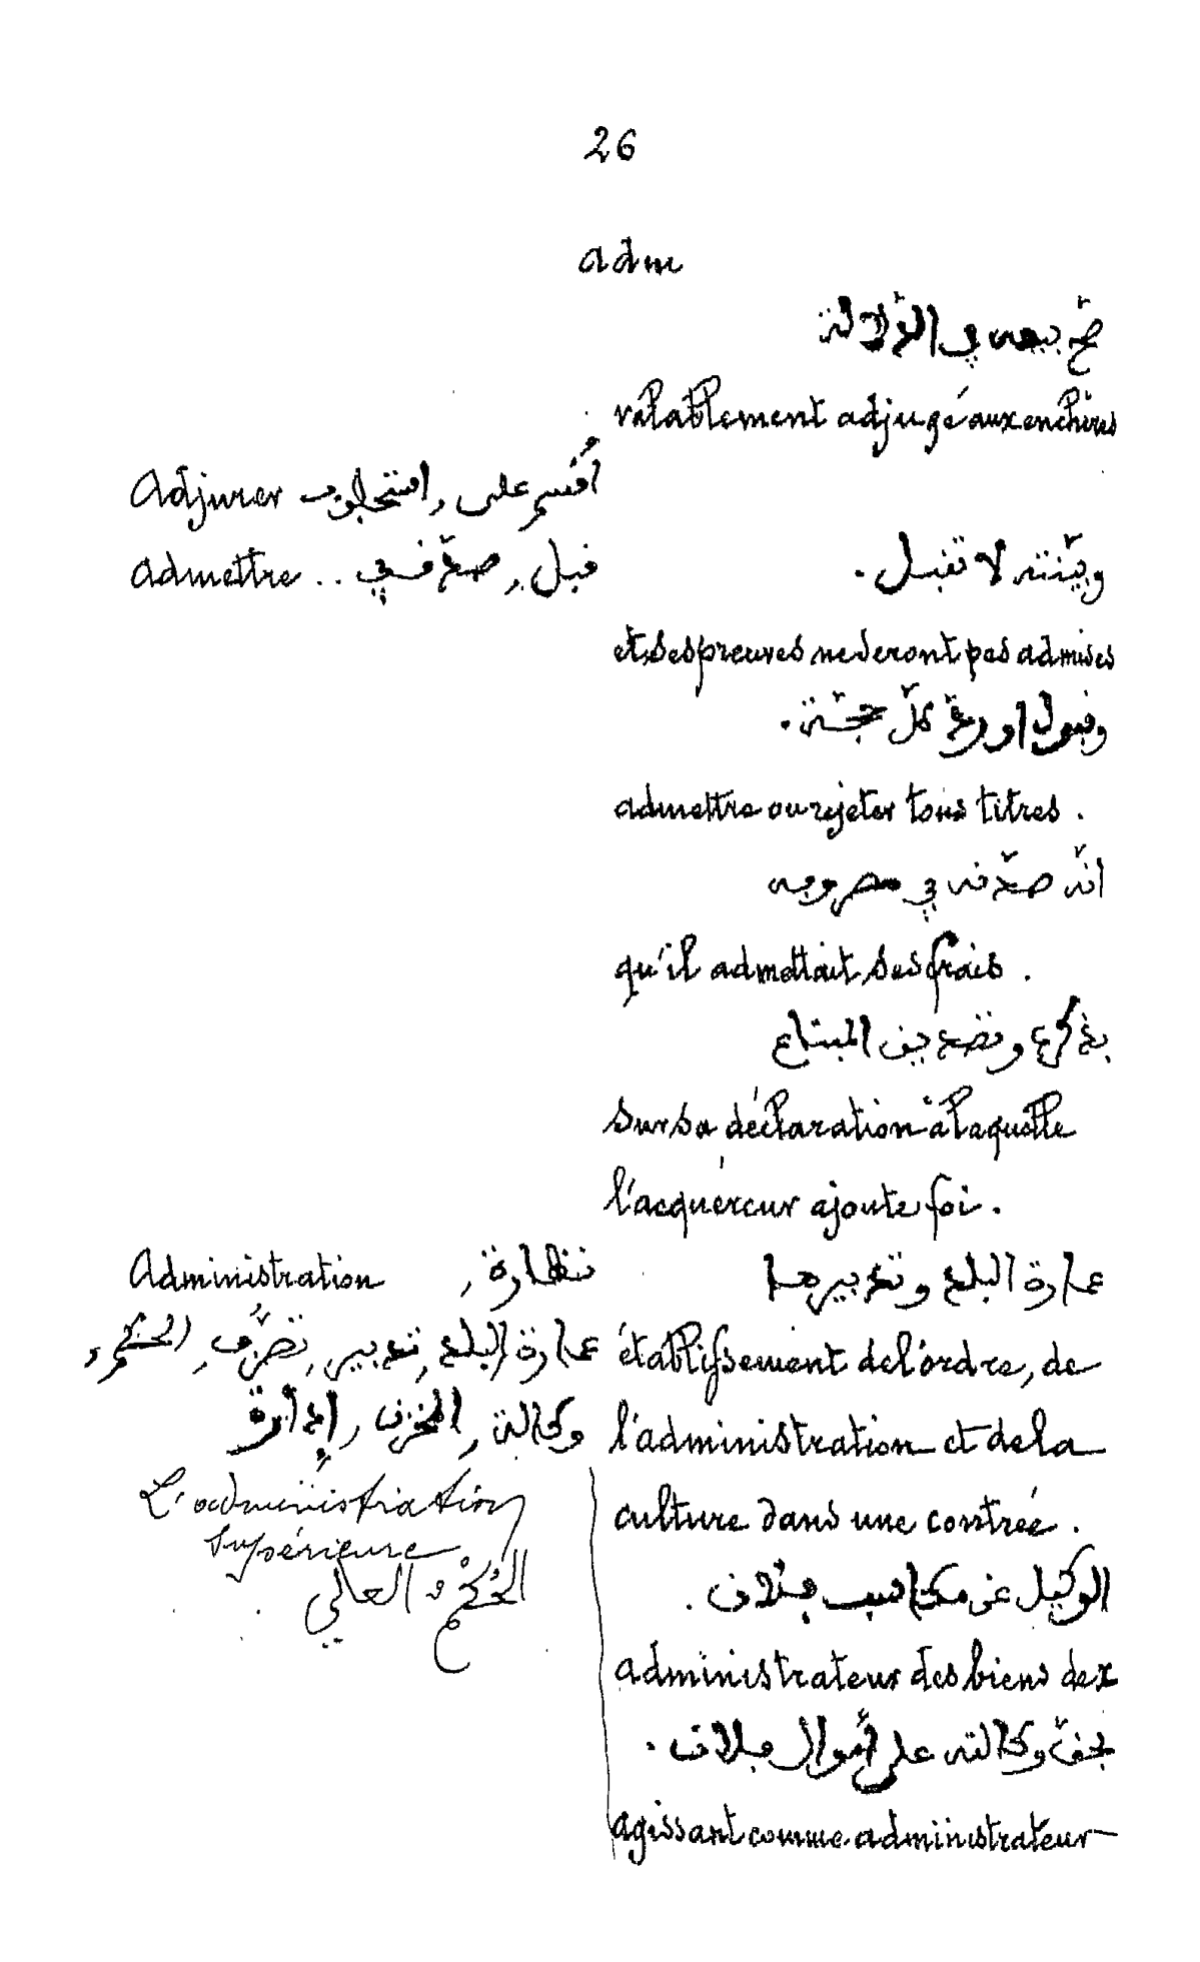 26
adm
صحّ بيعه في الدّلالة
valablement adjugé aux enchères
Adjurer أقسم على,
admettre .. قبل, صدّق في
وبيّنته لا تقبل.
et ses preuves ne seront pas admises
وقبول او ردّ كلّ حجّة.
admettre ou rejeter tous titres.
انّه صدّقه في مصروفه
qu'il admettait ses frais.
بذكره وتصديق المبتاع
sur sa déclaration à laquelle
l'acquéreur ajoute foi.
Administration نظارة,
عمارة البلد, تدبير, تصرّف, الحكم,
وكالة, المخزن, إدارة
L'administration
supérieure
الحُكْم العالي
عمارة البلد وتدبيرها
établissement de l'ordre, de
l'administration et de la
culture dans une contrée.
الوكيل عن مكاسب فلان.
administrateur des biens de x
بحقّ وكالته على أموال فلان.
agissant comme administrateur